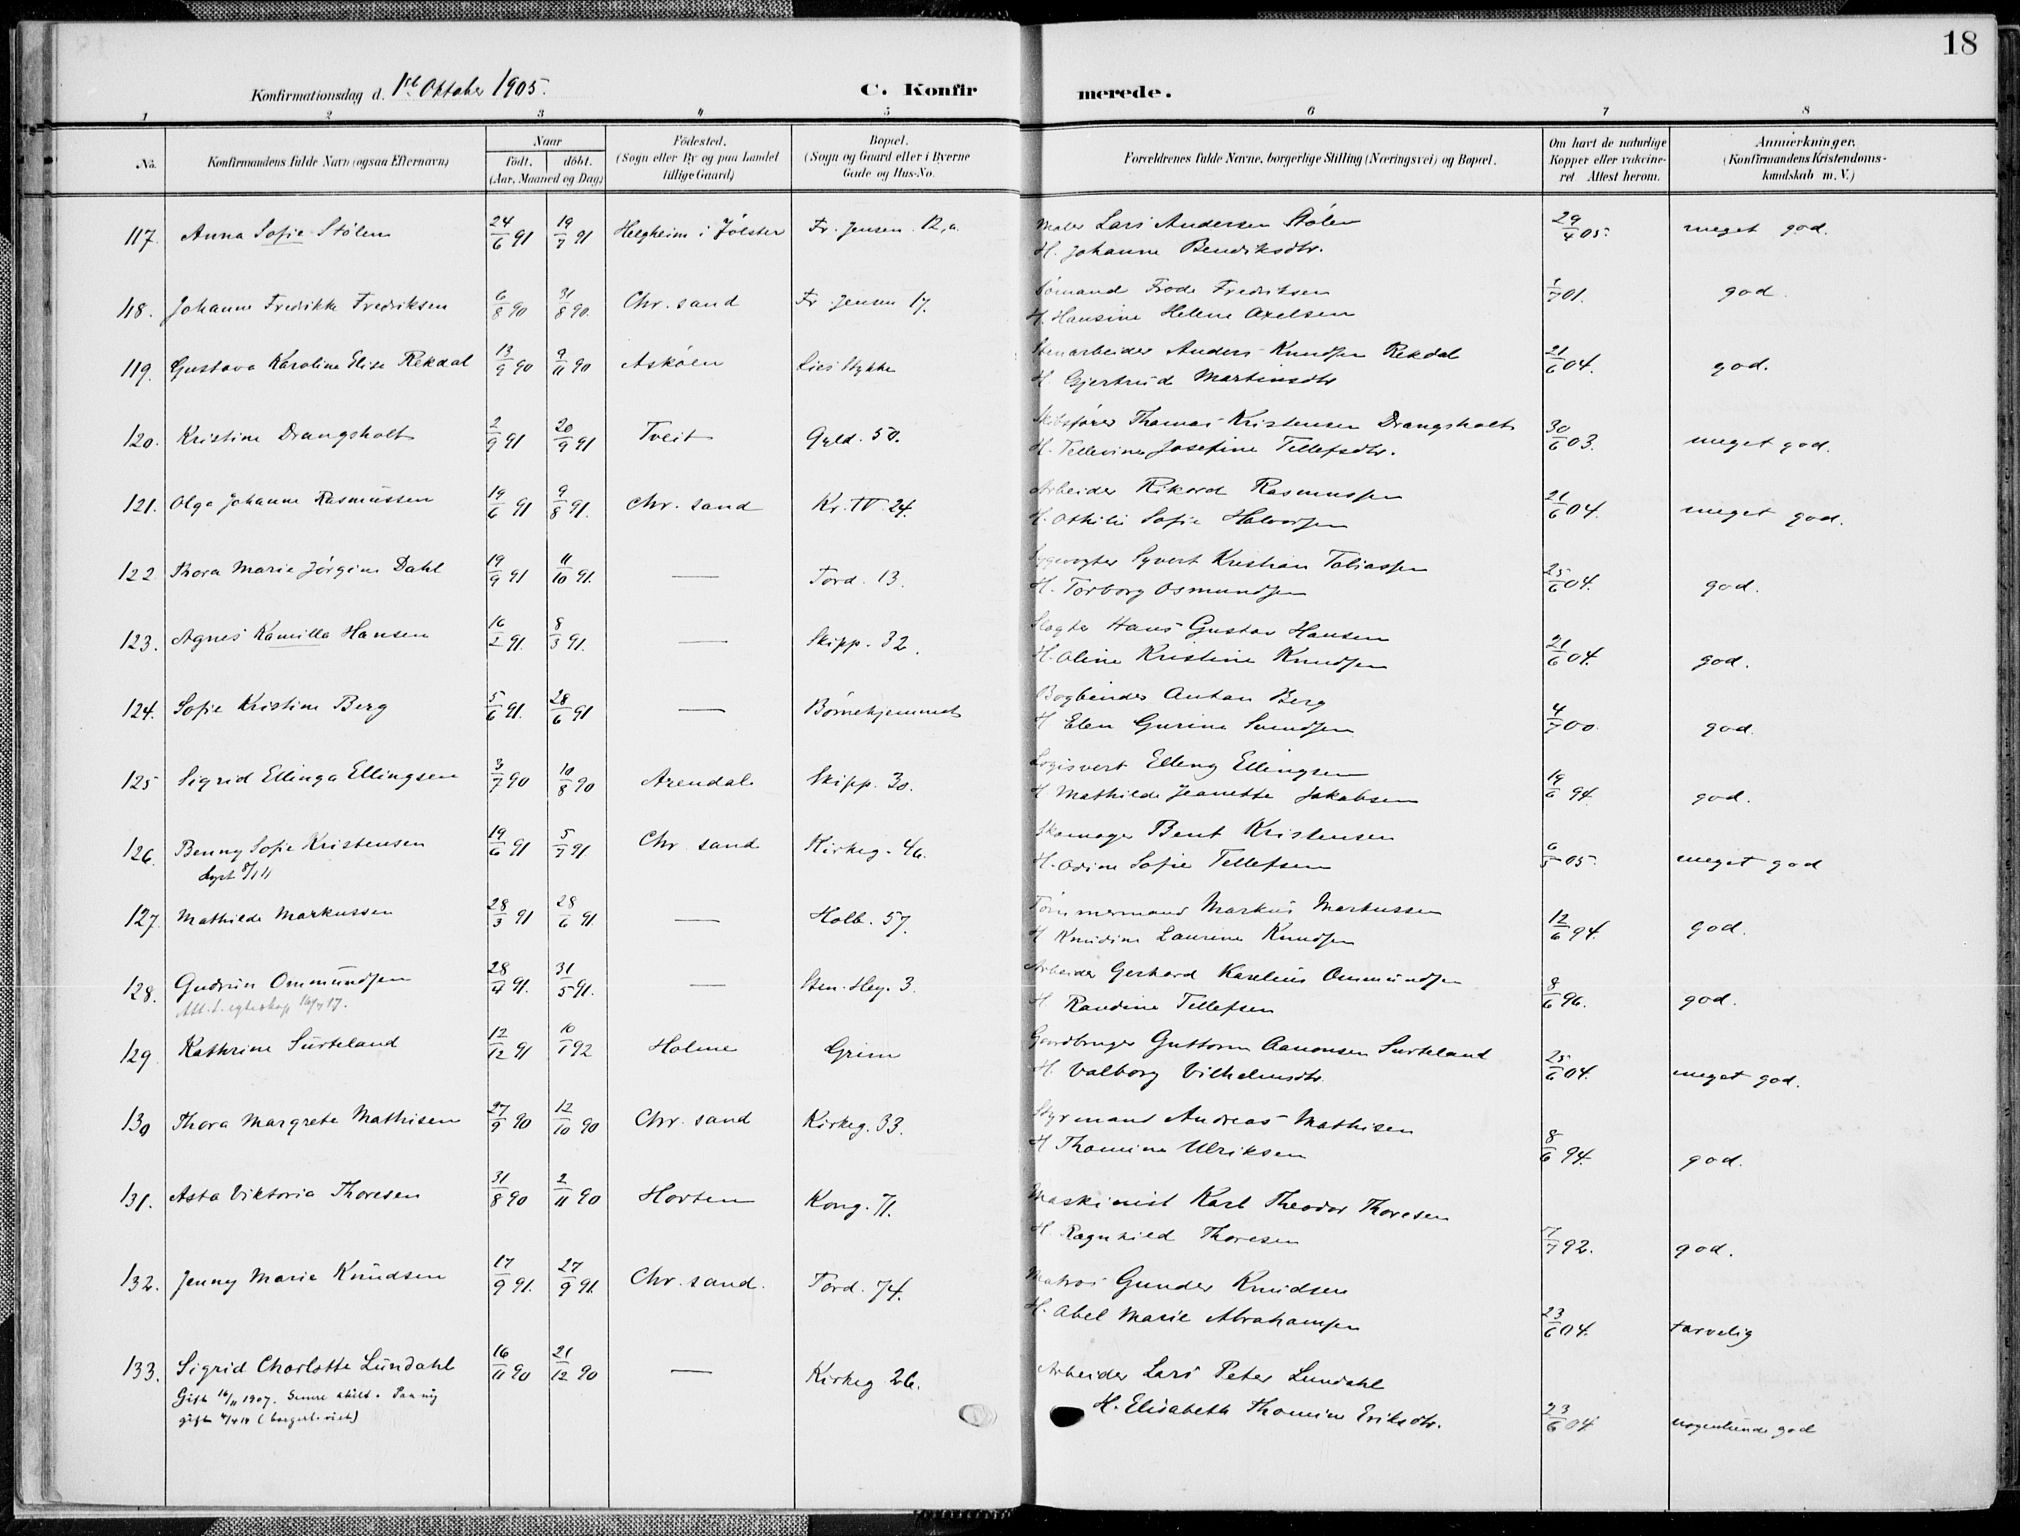 18
Konfirmationsdag d. 1ste Oktober 1905.
C. Konfirmerede.
1 2 3 4 5 6 7 8
No. Konfirmandens fulde Navn (ogsaa Efternavn) Naar født. døbt. (Aar, Maaned og Dag) Fødested. (Sogn eller By og paa Landet tillige Gaard) Bopæl. (Sogn og Gaard eller i Byerne Gade og Hus-No. Forældrenes fulde Navne, borgerlige Stilling (Næringsvei) og Bopæl. Om havt de naturlige Kopper eller vakcineret. Attest herom. Anmærkninger. (Konfirmandens Kristendomskundskab m. V.)
117. Anna Sofie Stølen 24/6 91 19/7 91 Helgheim i Jølster Fr. Jensen. 12,a. Maler Lars Andersen Stølen 29/4 05. meget god.
H. Johanne Bendiksdtr.
118. Johanne Fredrikke Fredriksen 6/8 90 31/8 90. Chr. sand Fr. Jensen 17. Sømand Frode Fredriksen 1/7 01. god.
H. Hansine Helene Axelsen
119. Gustava Karoline Elise Rekdal 13/9 90 9/11 90 Askøen Lies Stykke Stenarbeider Anders Knudsen Rekdal 21/6 04. god.
H. Gjertrud Martinsdtr
120. Kristine Drangsholt 2/9 91 20/9 91 Tveit Gyld. 50. Skibsfører Thomas Kristensen Drangsholt 30/6 03. meget god.
H. Tellevine Josefine Tellefsdtr.
121. Olga Johanne Rasmussen 19/6 91 9/8 91. Chr. sand Kr. IV. 24. Arbeider Rikard Rasmussen 21/6 04. meget god.
H. Othilie Sofie Halvorsen
122. Thora Marie Jørgine Dahl 19/9 91 11/10 91. — Tord. 13. Sygevogter Syvert Kristian Tobiassen 25/6 04. god.
H. Torborg Osmundsen
123. Agnes Kamilla Hansen 16/2 91. 8/3 91. — Skipp. 32. Slagter Hans Gustav Hansen 21/6 04. god.
H. Oline Kristine Knudsen
124. Sofie Kristine Berg 5/6 91. 28/6 91 — Børnehjemmet Bogbinder Anton Berg 4/7 00. god.
H Elen Gurine Svendsen
125 Sigrid Ellinga Ellingsen 3/7 90 10/8 90 Arendal Skipp. 30. Logisvert Elling Ellingsen 19/6 94. god.
H Mathilde Jeanette Jakobsen
126. Benny Sofie Kristensen 19/6 91 5/7 91. Chr. sand Kirkeg. 46. Skomager Bent Kristensen 6/5 05. meget god
H. Odine Sofie Tellefsen
127. Mathilde Markussen 28/3 91 28/6 91. — Holb. 57. Tømmermand Markus Markussen 12/6 94. god.
H Knudine Laurine Knudsen
128. Gudrun Ommundsen 28/4 91. 31/5 91. — Sten. Hey. 3. Arbeider Gerhard Karelius Ommundsen 8/6 96. god.
H Randine Tellefsen
129. Kathrine Surteland 12/12 91 10/1 92 Holme Grim Gaardbruger Guttorm Aanonsen Surteland 25/6 04. meget god.
H. Valborg Vilhelmsdtr.
130 Thora Margrete Mathisen 27/9 90 12/10 90 Chr. sand Kirkeg. 33. Styrmand Andreas Mathisen 8/6 94. god.
H Thomine Ulriksen
131. Asta Viktoria Thoresen 31/8 90 2/11 90 Horten Kong. 71. Maskinist Karl Theodor Thoresen 7/7 92. god.
H. Ragnhild Thoresen
132. Jenny Marie Knudsen 17/9 91. 27/9 91. Chr. sand. Tord. 74. Matros Gunder Knudsen 23/6 04. tarvelig
H. Abel Marie Abrahamsen
133. Sigrid Charlotte Lundahl 16/11 90 21/12 90 — Kirkeg 26. Arbeider Lars Peter Lundahl 23/6 04 nogenlunde god
Gift 16/11 1907. Senere skilt. Paany H. Elisabeth Thomine Eriksdtr.
gift (borgerl. viet)